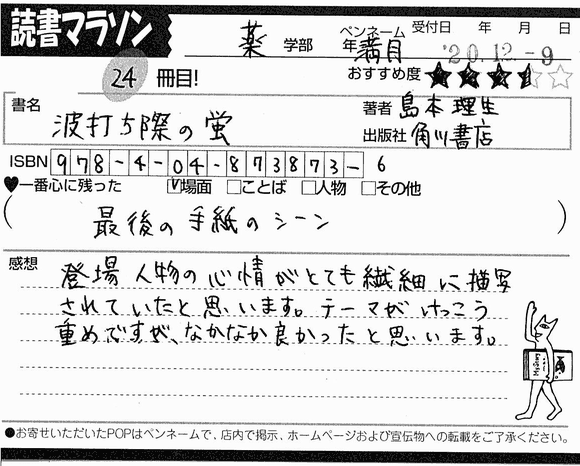 読書マラソン
薬 学部 年 ペンネーム 満月 受付日 年 月 日
'20.12.-9
24 冊目! おすすめ度
書名 波打ち際の蛍
著者 島本理生
出版社 角川書店
ISBN 978-4-04-873873-6
♥一番心に残った ☑場面 □ことば □人物 □その他
( 最後の手紙のシーン )
感想
登場人物の心情がとても繊細に描写
されていたと思います。テーマがけっこう
重めですが、なかなか良かったと思います。
●お寄せいただいたPOPはペンネームで、店内で掲示、ホームページおよび宣伝物への転載をご了承ください。